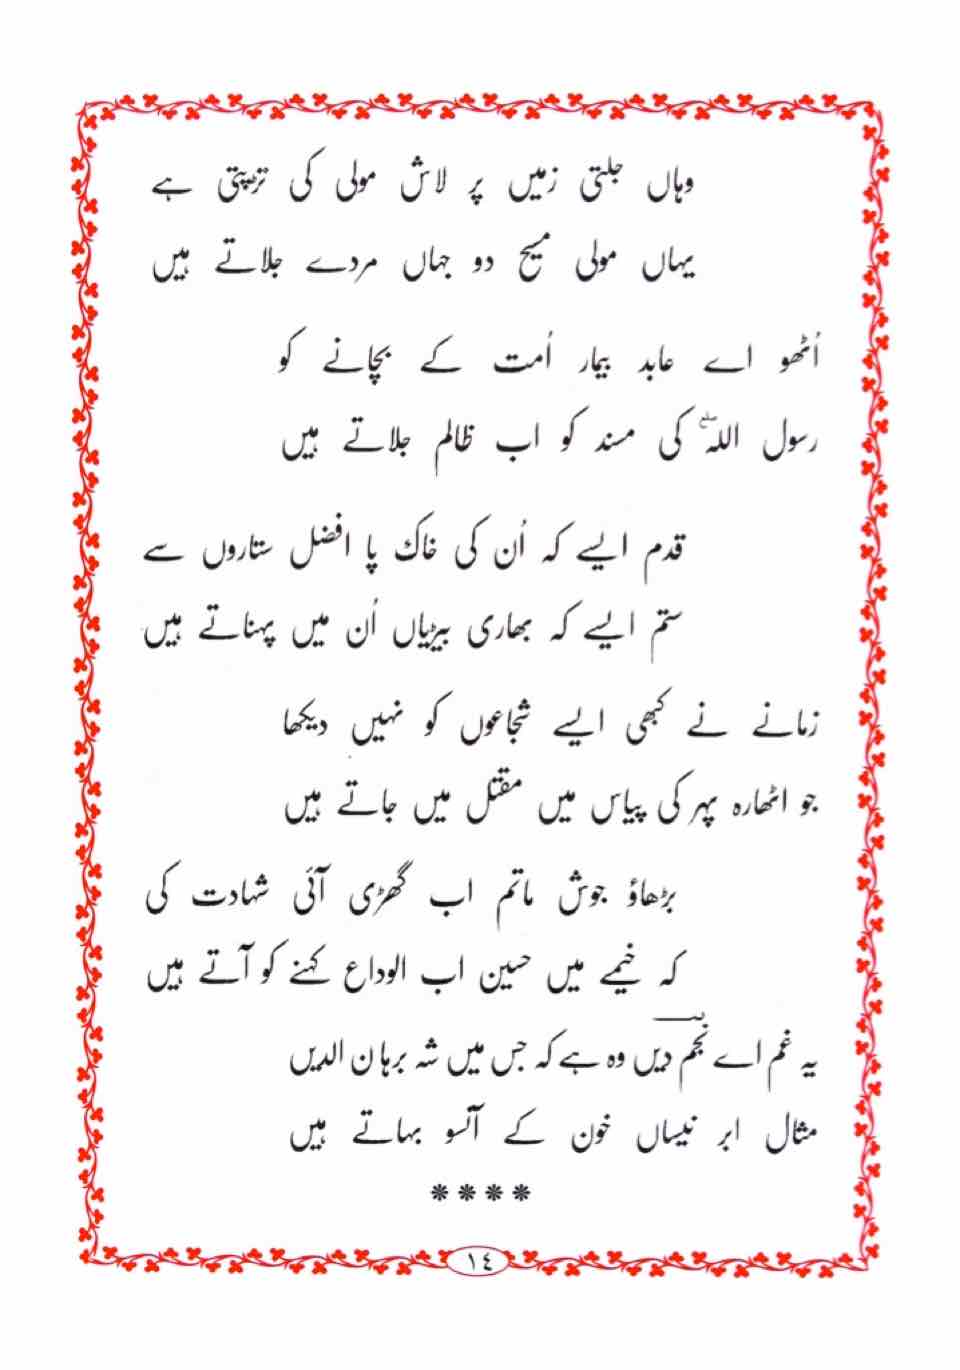 وہاں جلتی زمیں پر لاش مولی کی تڑپتی ہے
یہاں مولی مسیح دو جہاں مردے جلاتے ہیں
اُٹھو اے عابد بیمار اُمت کے بچانے کو
رسول اللہؐ کی مسند کو اب ظالم جلاتے ہیں
قدم ایسے کہ اُن کی خاک پا افضل ستاروں سے
ستم ایسے کہ بھاری بیڑیاں اُن میں پہناتے ہیں
زمانے نے کبھی ایسے شجاعوں کو نہیں دیکھا
جو اٹھارہ پہر کی پیاس میں مقتل میں جاتے ہیں
بڑھاؤ جوش ماتم اب گھڑی آئی شہادت کی
کہ خیمے میں حسین اب الوداع کہنے کو آتے ہیں
یہ غم اے نجم دیں وہ ہے کہ جس میں شہ برہان الدیں
مثال ابر نیساں خون کے آنسو بہاتے ہیں
****
١٤